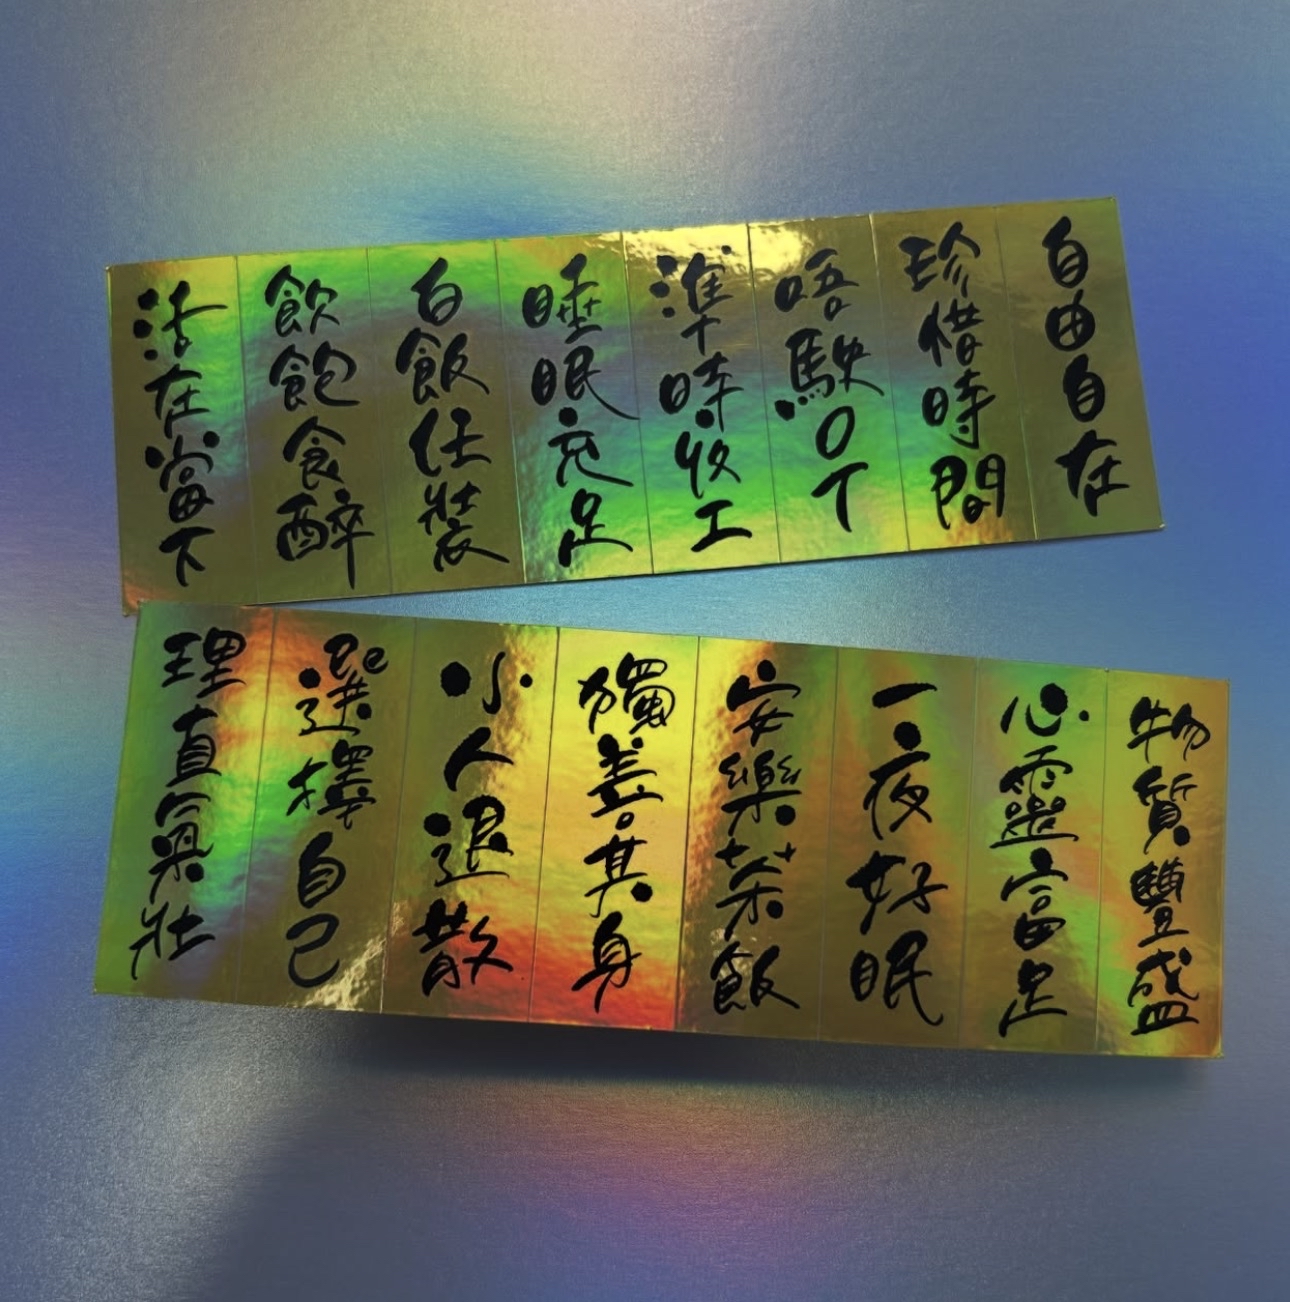 自由自在
珍惜時間
唔駛OT
準時收工
睡眠充足
白飯任裝
飲飽食醉
活在當下
物質豐盛
心靈富足
一夜好眠
安樂茶飯
獨善其身
小人退散
選擇自己
理直氣壯